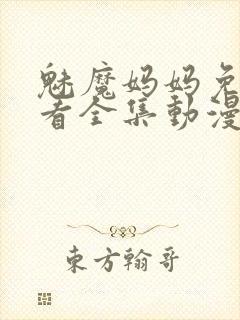 魅魔妈妈免
者全集動漫
东方翰哥